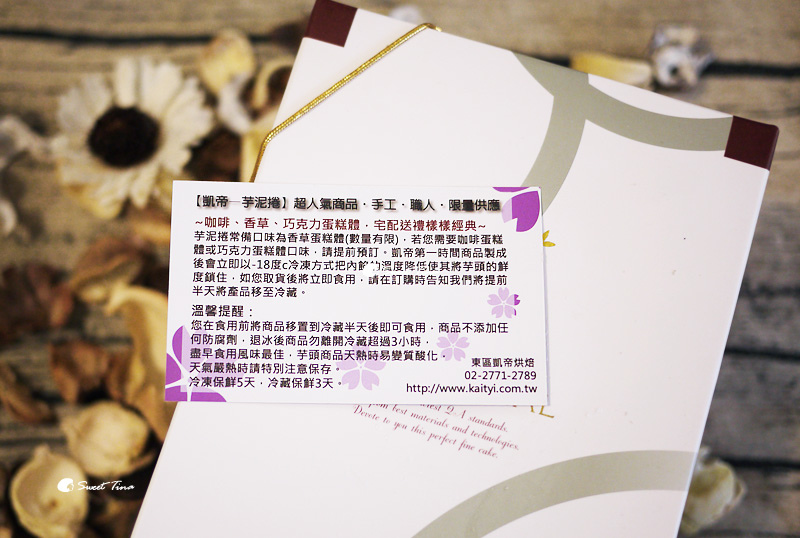 【凱帝—芋泥捲】超人氣商品‧手工‧職人‧限量供應
~咖啡、香草、巧克力蛋糕體，宅配送禮樣樣經典~
芋泥捲常備口味為香草蛋糕體(數量有限)，若您需要咖啡蛋糕
體或巧克力蛋糕體口味，請提前預訂。凱帝第一時間商品製成
後會立即以-18度c冷凍方式把內餡的溫度降低使其將芋頭的鮮
度鎖住，如您取貨後將立即食用，請在訂購時告知我們將提前
半天將產品移至冷藏。
溫馨提醒：
您在食用前將商品移置到冷藏半天後即可食用，商品不添加任
何防腐劑，退冰後商品勿離開冷藏超過3小時，
盡早食用風味最佳，芋頭商品天熱時易變質酸化，
天氣嚴熱時請特別注意保存。
冷凍保鮮5天，冷藏保鮮3天。
東區凱帝烘焙
02-2771-2789
http://www.kaityi.com.tw
standards.
from best materials and technologies.
Devote to you this perfect fine cake.
Sweet Tina